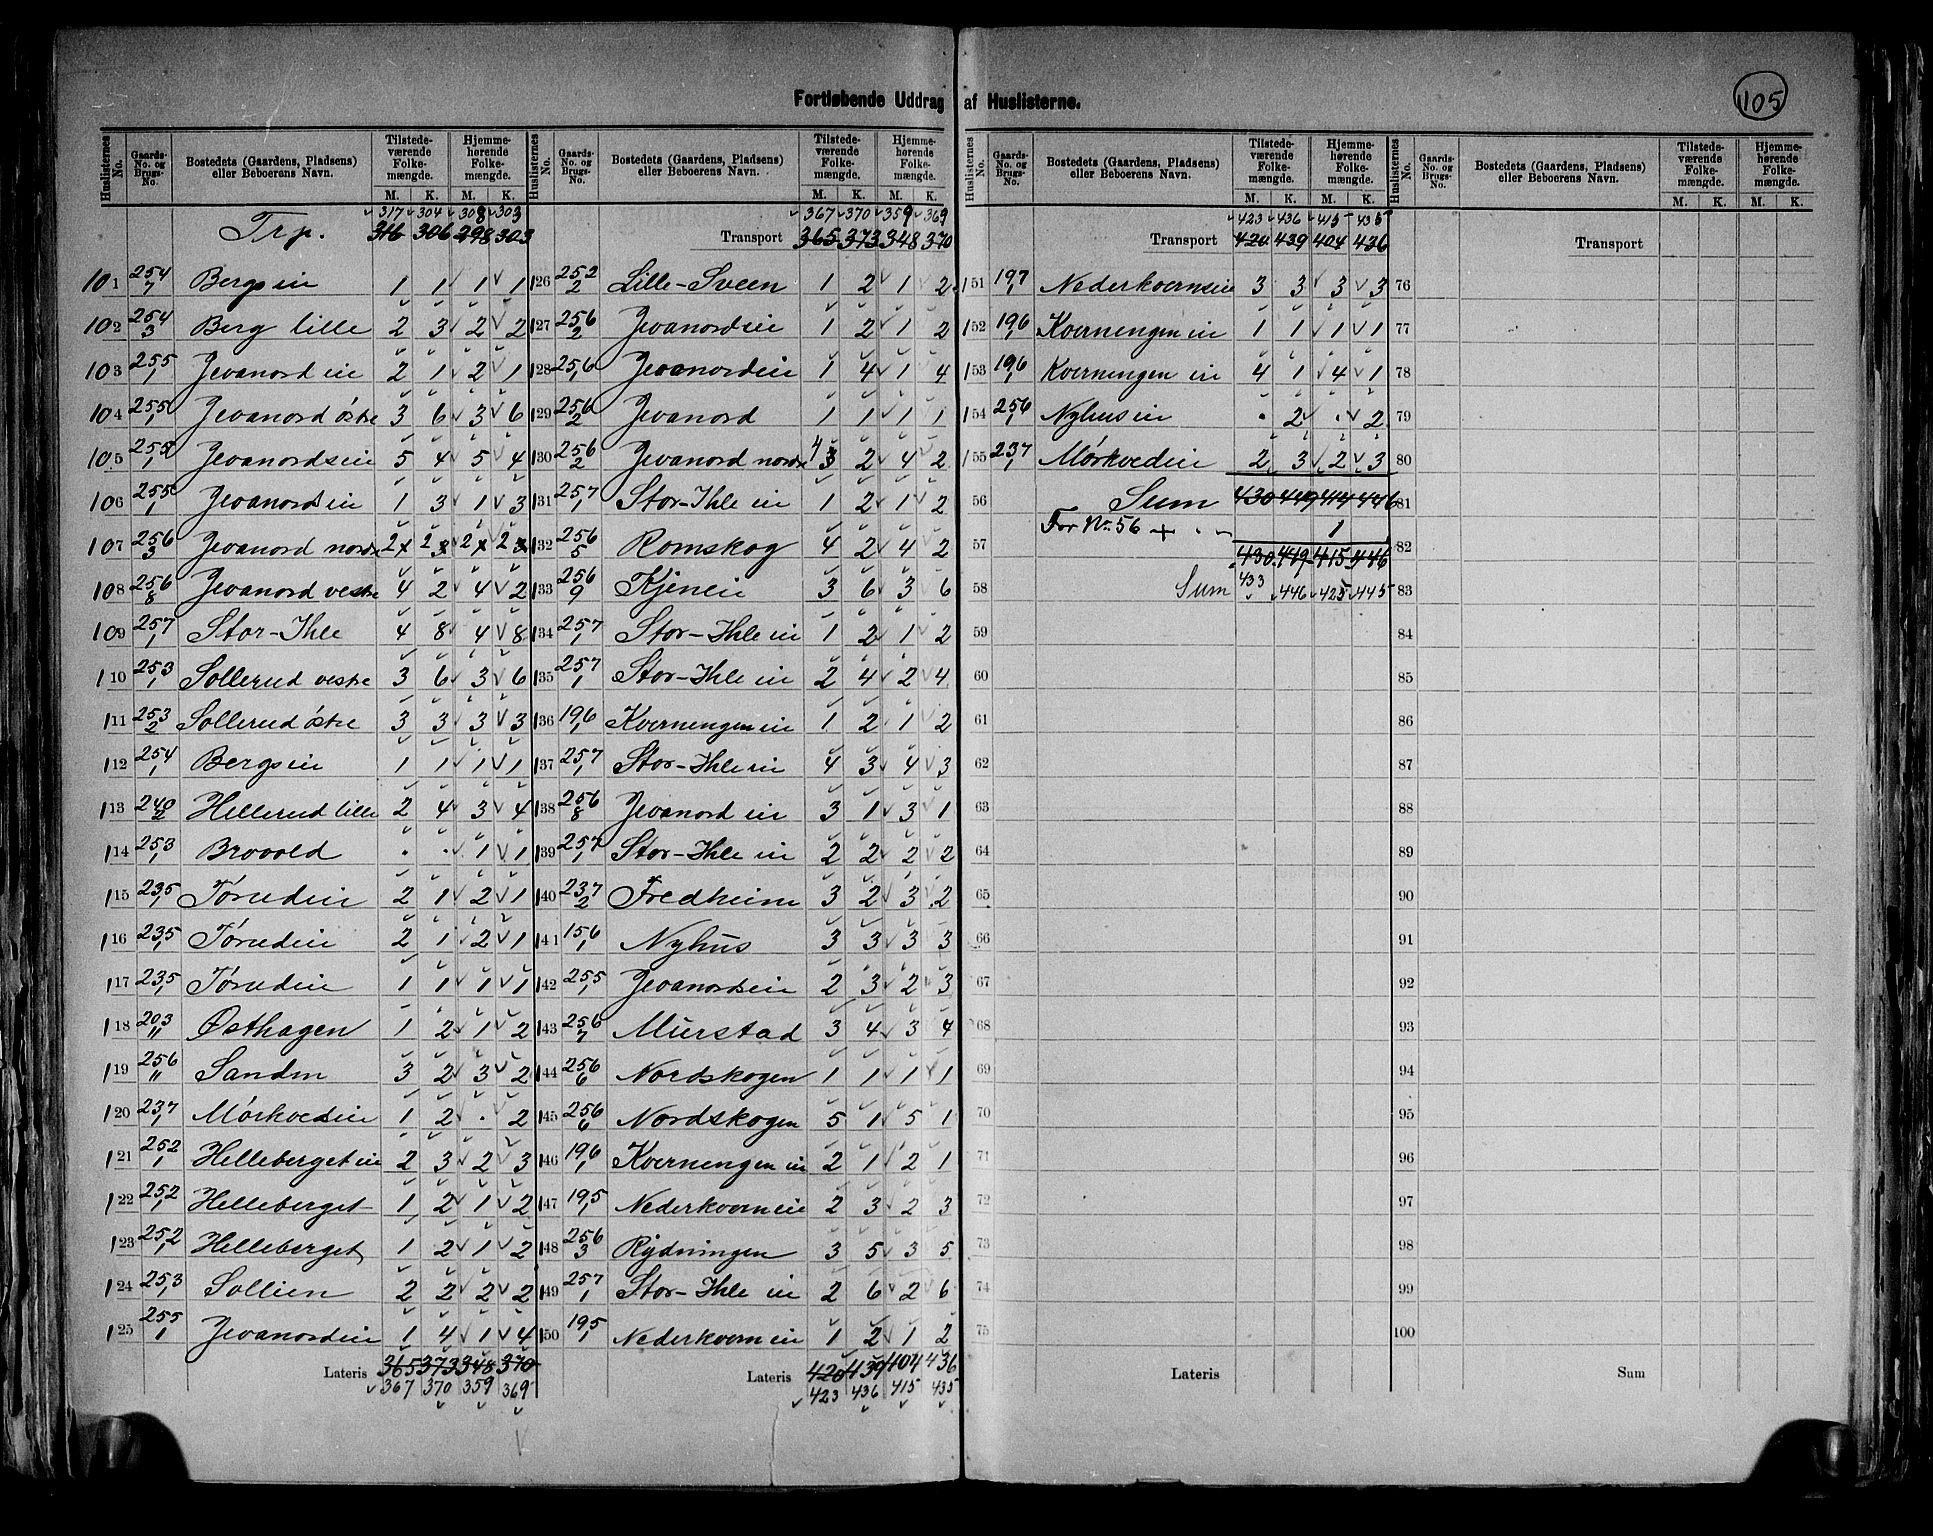 Fortløbende Uddrag af Huslisterne.
105
Huslisternes No. | Gaards-No. og Brugs-No. | Bostedets (Gaardens, Pladsens) eller Beboerens Navn. | Tilstedeværende Folkemængde. M. K. | Hjemmehørende Folkemængde. M. K.
317 304 308 303
Trp. 316 306 298 303
101 254/7 Bergsei 1 1 1 1
102 254/3 Berg lille 2 3 2 2
103 255/1 Jevanord ei 2 1 2 1
104 255/1 Jevanord østre 3 6 3 6
105 255/1 Jevanordsei 5 4 5 4
106 255/1 Jevanordsei 1 3 1 3
107 256/3 Jevanord nordre 2 2 2 2
108 256/8 Jevanord vestre 4 2 4 2
109 257/1 Stor-Ihle 4 8 4 8
110 253/1 Sollerud vestre 3 6 3 6
111 253/2 Sollerud østre 3 3 3 3
112 254/1 Bergsei 1 1 1 1
113 240/2 Hellerud lille 2 4 3 4
114 253/1 Brovold . . 1 1
115 235/1 Tørudei 2 1 2 1
116 235/1 Tørudei 2 1 2 1
117 235/1 Tørudei 1 1 1 1
118 203/11 Østhagen 1 2 1 2
119 256/11 Sanden 3 2 3 2
120 237/1 Mørkvedei 1 2 . 2
121 252/1 Helleberget ei 2 3 2 3
122 252/1 Helleberget 1 2 1 2
123 252/1 Helleberget 1 2 1 2
124 253/1 Sollien 2 2 2 2
125 255/1 Jevanordei 1 4 1 4
Lateris 365 373 348 370
367 370 359 369
Huslisternes No. | Gaards-No. og Brugs-No. | Bostedets (Gaardens, Pladsens) eller Beboerens Navn. | Tilstedeværende Folkemængde. M. K. | Hjemmehørende Folkemængde. M. K.
367 370 359 369
Transport 365 373 348 370
126 252/2 Lille-Sveen 1 2 1 2
127 256/2 Jevanordsei 1 2 1 2
128 256/1 Jevanordei 1 4 1 4
129 256/2 Jevanord 1 1 1 1
130 256/2 Jevanord nordre 4 3 2 4 2
131 257/1 Stor-Ihle ei 1 2 1 2
132 256/5 Romskog 4 2 4 2
133 256/9 Kjenei 3 6 3 6
134 257/1 Stor-Ihle ei 1 2 1 2
135 257/1 Stor-Ihle ei 2 4 2 4
136 196/1 Kverningen ei 1 2 1 2
137 257/1 Stor-Ihle ei 4 3 4 3
138 256/8 Jevanord ei 3 1 3 1
139 257/1 Stor-Ihle ei 2 2 2 2
140 237/2 Fredheim 3 2 3 2
141 156/1 Nyhus 3 3 3 3
142 255/1 Jevanordsei 2 3 2 3
143 256/7 Murstad 3 4 3 4
144 256/6 Nordskogen 1 1 1 1
145 256/6 Nordskogen 5 1 5 1
146 196/1 Kverningen ei 2 1 2 1
147 195/1 Nederkvern ei 2 3 2 3
148 256/3 Rydningen 3 5 3 5
149 257/1 Stor-Ihle ei 2 6 2 6
150 195/1 Nederkvern ei 1 2 1 2
Lateris 420 439 404 436
423 436 415 435
Huslisternes No. | Gaards-No. og Brugs-No. | Bostedets (Gaardens, Pladsens) eller Beboerens Navn. | Tilstedeværende Folkemængde. M. K. | Hjemmehørende Folkemængde. M. K.
423 436 415 435
Transport 420 439 404 436
151 197/1 Nederkvernsei 3 3 3 3
152 196/1 Kverningen ei 1 1 1 1
153 196/1 Kverningen ei 4 1 4 1
154 256/1 Nyhus ei . 2 . 2
155 237/1 Mørkvedei 2 3 2 3
56 Sum 430 449 414 446
For No. 56 + . - 1
57 430 449 415 446
433
58 Sum 446 425 445
59
60
61
62
63
64
65
66
67
68
69
70
71
72
73
74
75
Lateris
Huslisternes No. | Gaards-No. og Brugs-No. | Bostedets (Gaardens, Pladsens) eller Beboerens Navn. | Tilstedeværende Folkemængde. M. K. | Hjemmehørende Folkemængde. M. K.
Transport
76
77
78
79
80
81
82
83
84
85
86
87
88
89
90
91
92
93
94
95
96
97
98
99
100
Sum